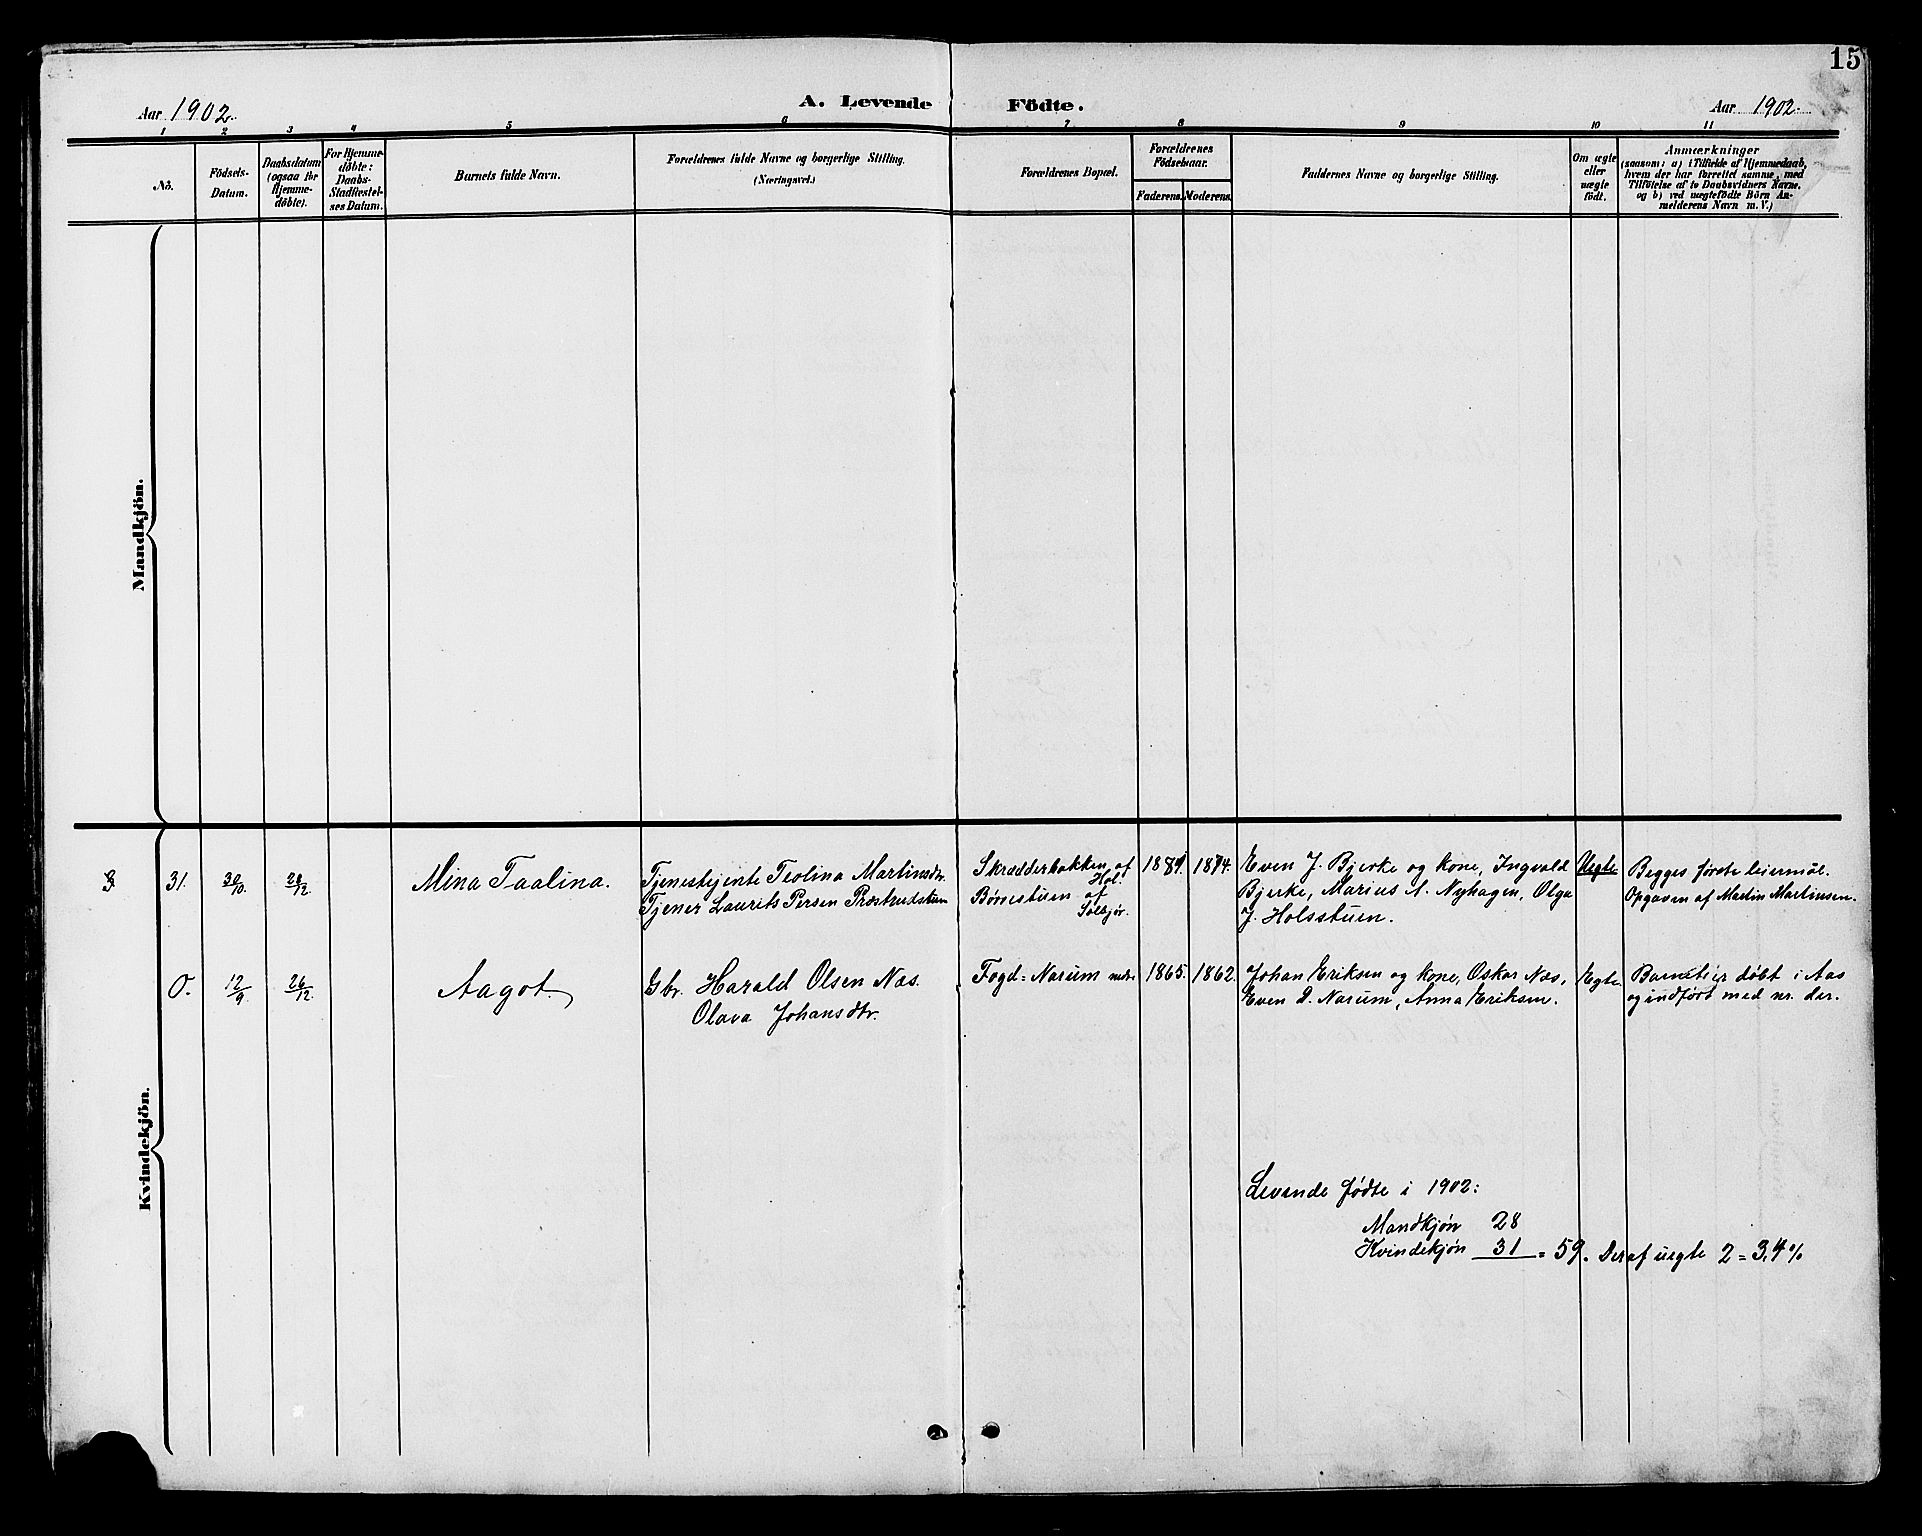 15
Aar 1902.
A. Levende Födte.
Aar 1902.
1 2 3 4 5 6 7 8 9 10 11
No.
Födsels-
Datum.
Daabsdatum
(ogsaa for
Hjemme-
döbte).
For Hjemme-
döbte:
Daabs-
Stadfæstel-
ses Datum.
Barnets fulde Navn.
Forældrenes fulde Navne og borgerlige Stilling.
(Næringsvei.)
Forældrenes Bopæl.
Forældrenes
Födselsaar.
Faderens. Moderens.
Faddernes Navne og borgerlige Stilling.
Om ægte
eller
uægte
födt.
Anmærkninger
(saasom: a) i Tilfælde af Hjemmedaab,
hvem der har forrettet samme, med
Tilföielse af to Daabsvidners Navne,
og b) ved uægtefödte Börn An-
melderens Navn m. V.)
Mandkjön.
Kvindekjön.
31. 30/10. 28/12.
Mina Taalina.
Tjenestejente Teolina Martinsdtr.
Tjener Laurits Persen Præstrudstuen
Skrædderbakken af
Hol.
Børrestuen af
Sølsjør.
1881. 1874.
Even J. Bjerke og kone, Ingvald
Bjerke, Marius A. Nyhagen, Olga
J. Holsstuen.
Uegte
Begges første leiermøl.
Opgaven af Martin Martinsen.
0. 12/9 26/12.
Aagot.
Gbr. Harald Olsen Næs.
Olava Johansdtr.
Fogd=Narum nedre
1865. 1862.
Johan Eriksen og kone, Oskar Næs,
Even D. Narum, Anna Eriksen.
Egte
Barnet er døbt i Aas
og indført med nr. der.
Levende fødte i 1902:
Mandkjøn 28
Kvindekjøn 31 = 59. Deraf uegte 2 = 3,4 %